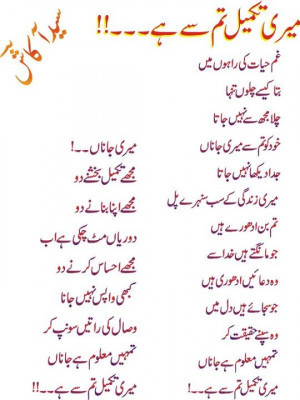 میری تکمیل تم سے ہے۔۔۔!!
سیدآکاش
غم حیات کی راہوں میں
بتا کیسے چلوں تنہا
چلا مجھ سے نہیں جاتا
خود کو تم سے میری جاناں
جدا دیکھا نہیں جاتا
میری زندگی کے سب سنہرے پل
تم بن ادھورے ہیں
جو مانگتے ہیں خدا سے
وہ دعائیں ادھوری ہیں
جو سجائے ہیں دل میں
وہ سپنے حقیقت کر
تمہیں معلوم ہے جاناں
میری تکمیل تم سے ہے۔۔!
میری جاناں۔۔!
مجھے تکمیل بخشنے دو
مجھے اپنا بنانے دو
دوریاں مٹ چکی ہے اب
مجھے احساس کرنے دو
کبھی واپس نہیں جانا
وصال کی راتیں سونپ کر
تمہیں معلوم ہے جاناں
میری تکمیل تم سے ہے۔۔!!